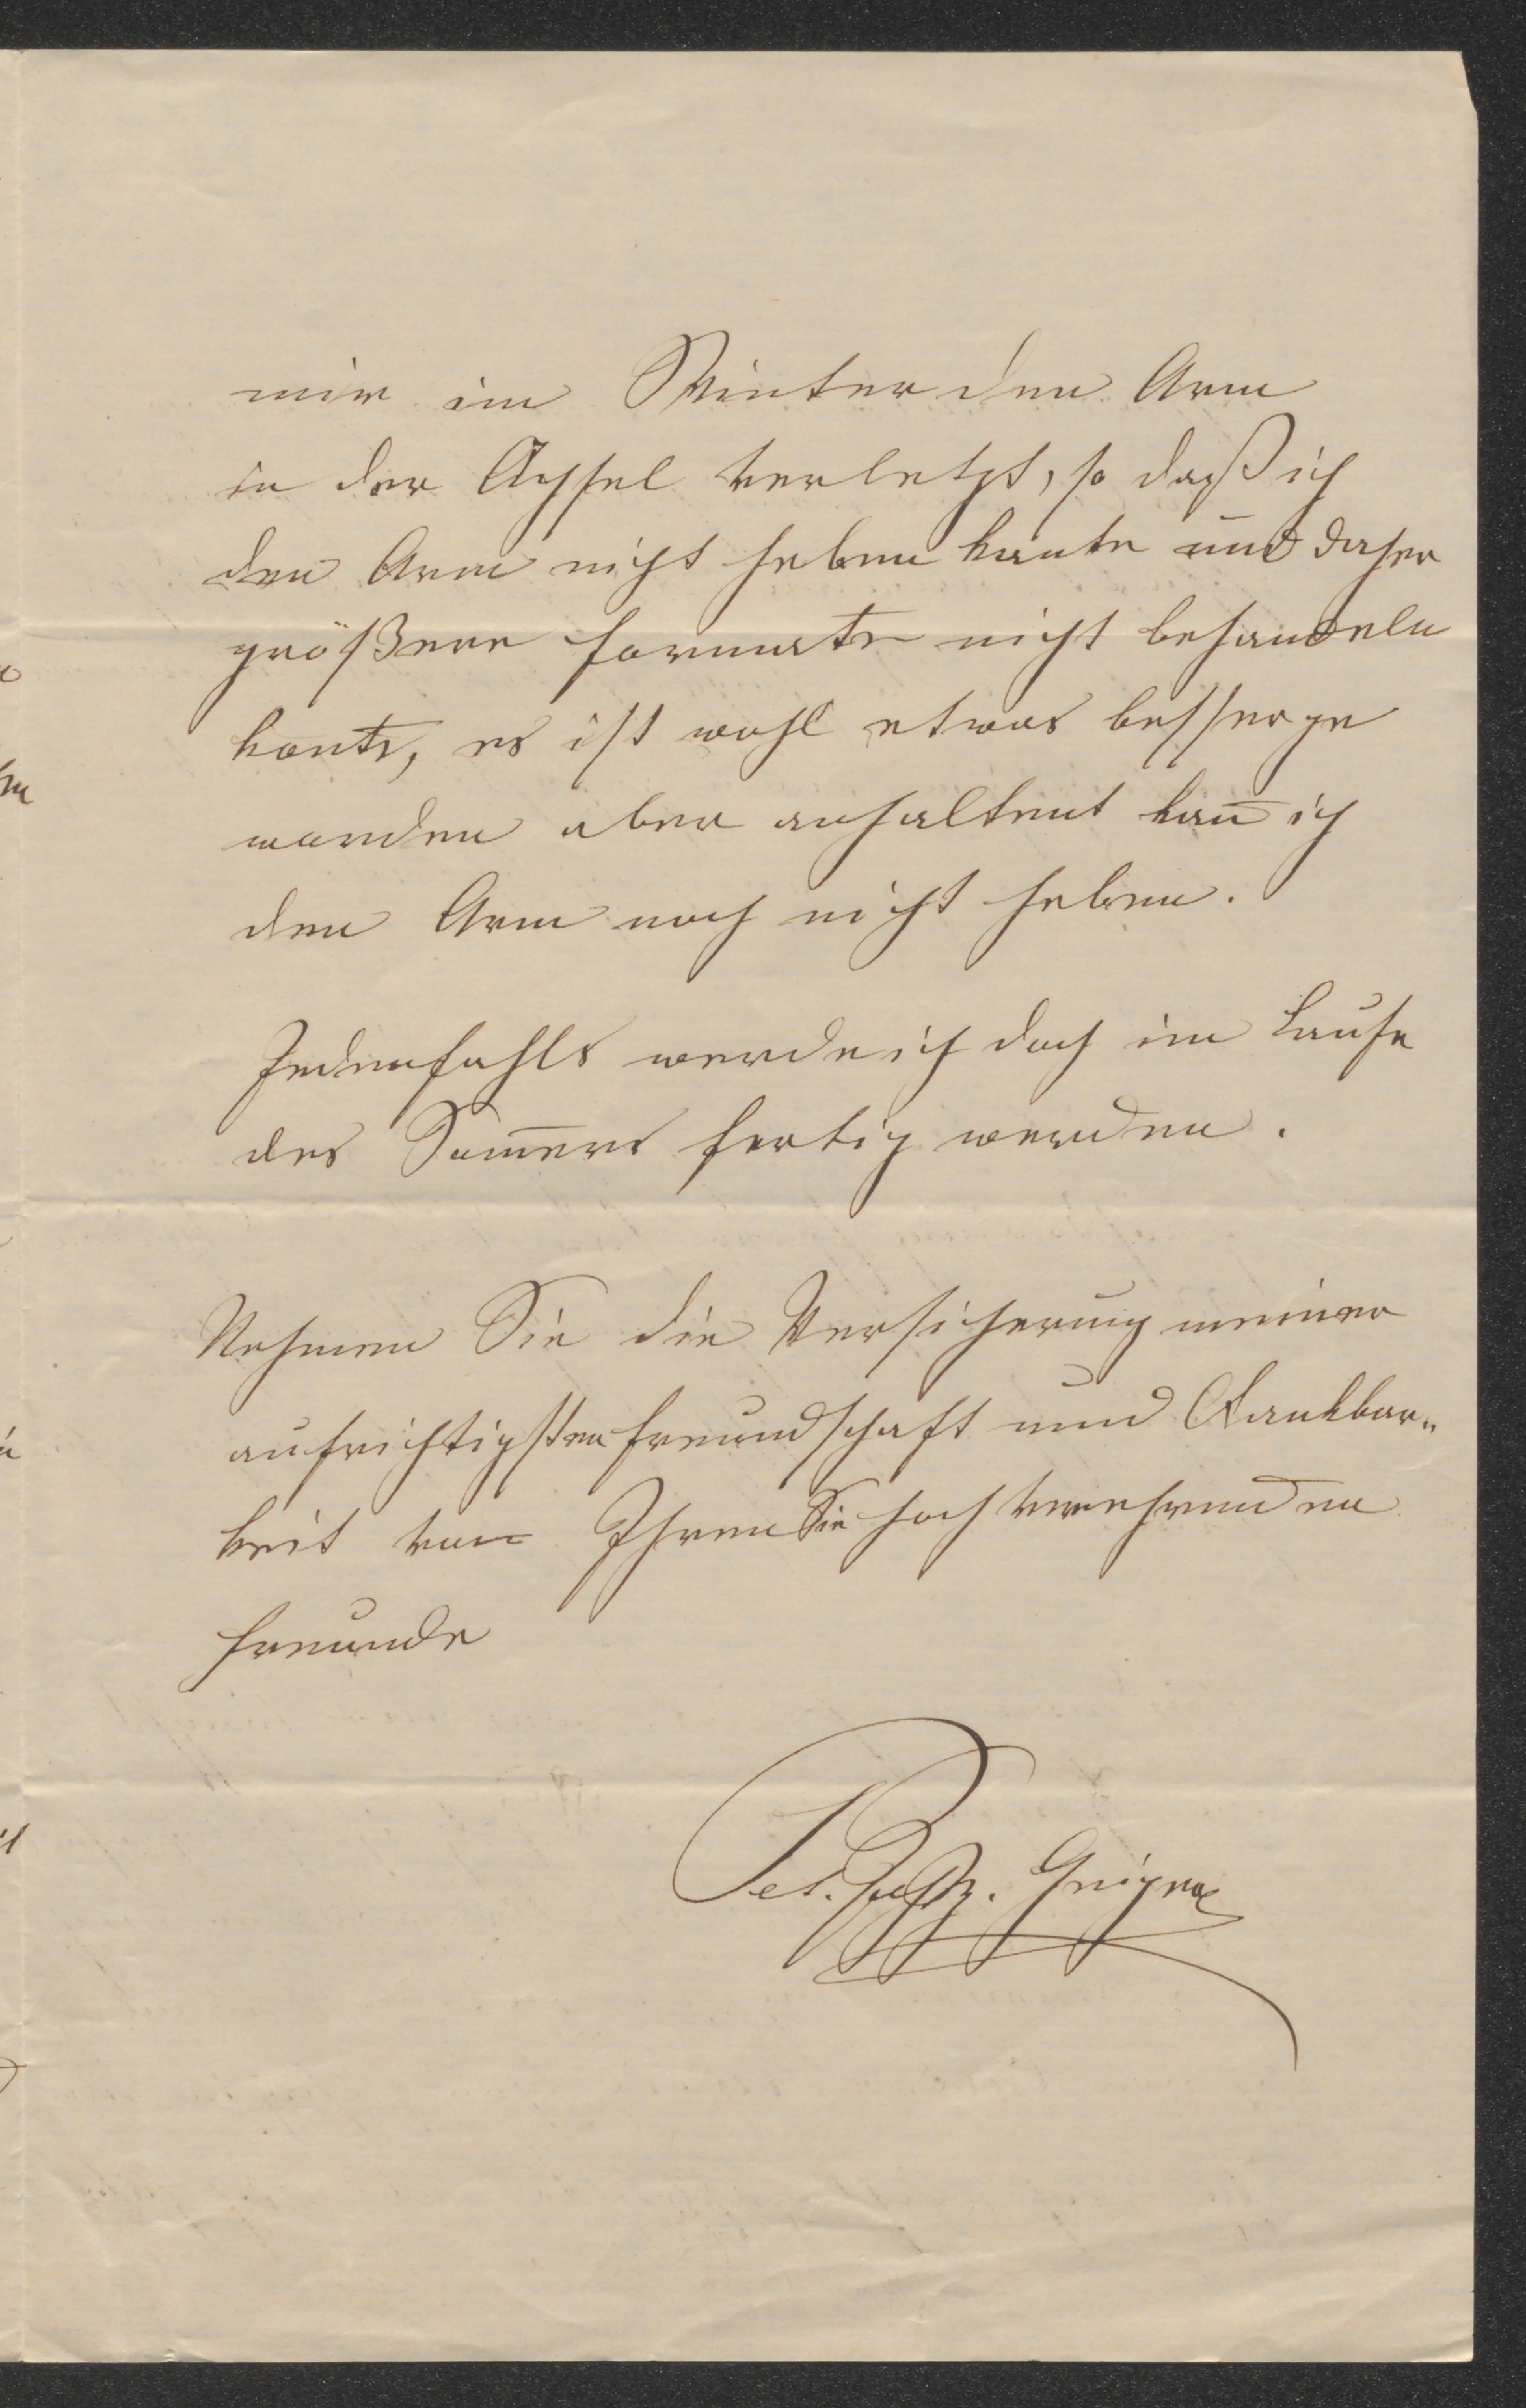 mir im Winter den Arm
in der Achsel verletzt, so daß ich
den Arm nicht heben konte und daher
größere Formate nicht behandeln
konte, es ist wohl etwas besser ge
worden aber anhaltent kan̄ ich
den Arm noch nicht heben.
Jedenfahls werde ich doch im Laufe
des Som̄ers fertig werden.
Nehmen Sie die Versicherung meiner
aufrichtigsten Freundschaft und Dankbar„
keit von Ihrem Sie hoch verehrenden
Freunde
Pet. Joh. N. Geiger